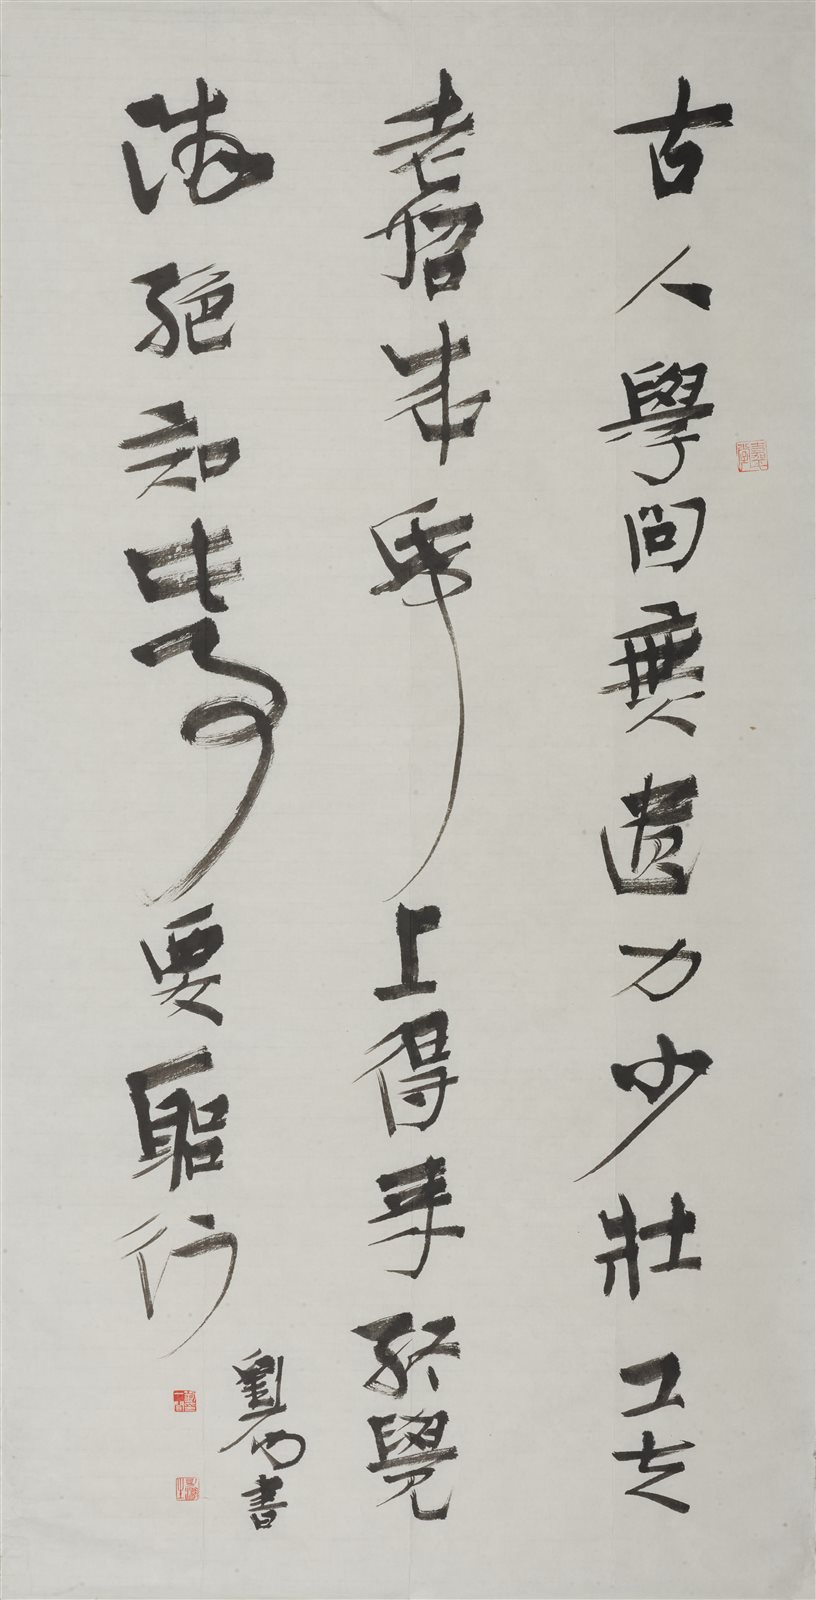 古人學問無遺力少壯工夫
老始成帋上得來終覺
淺絕知此事要躳行
劉 書